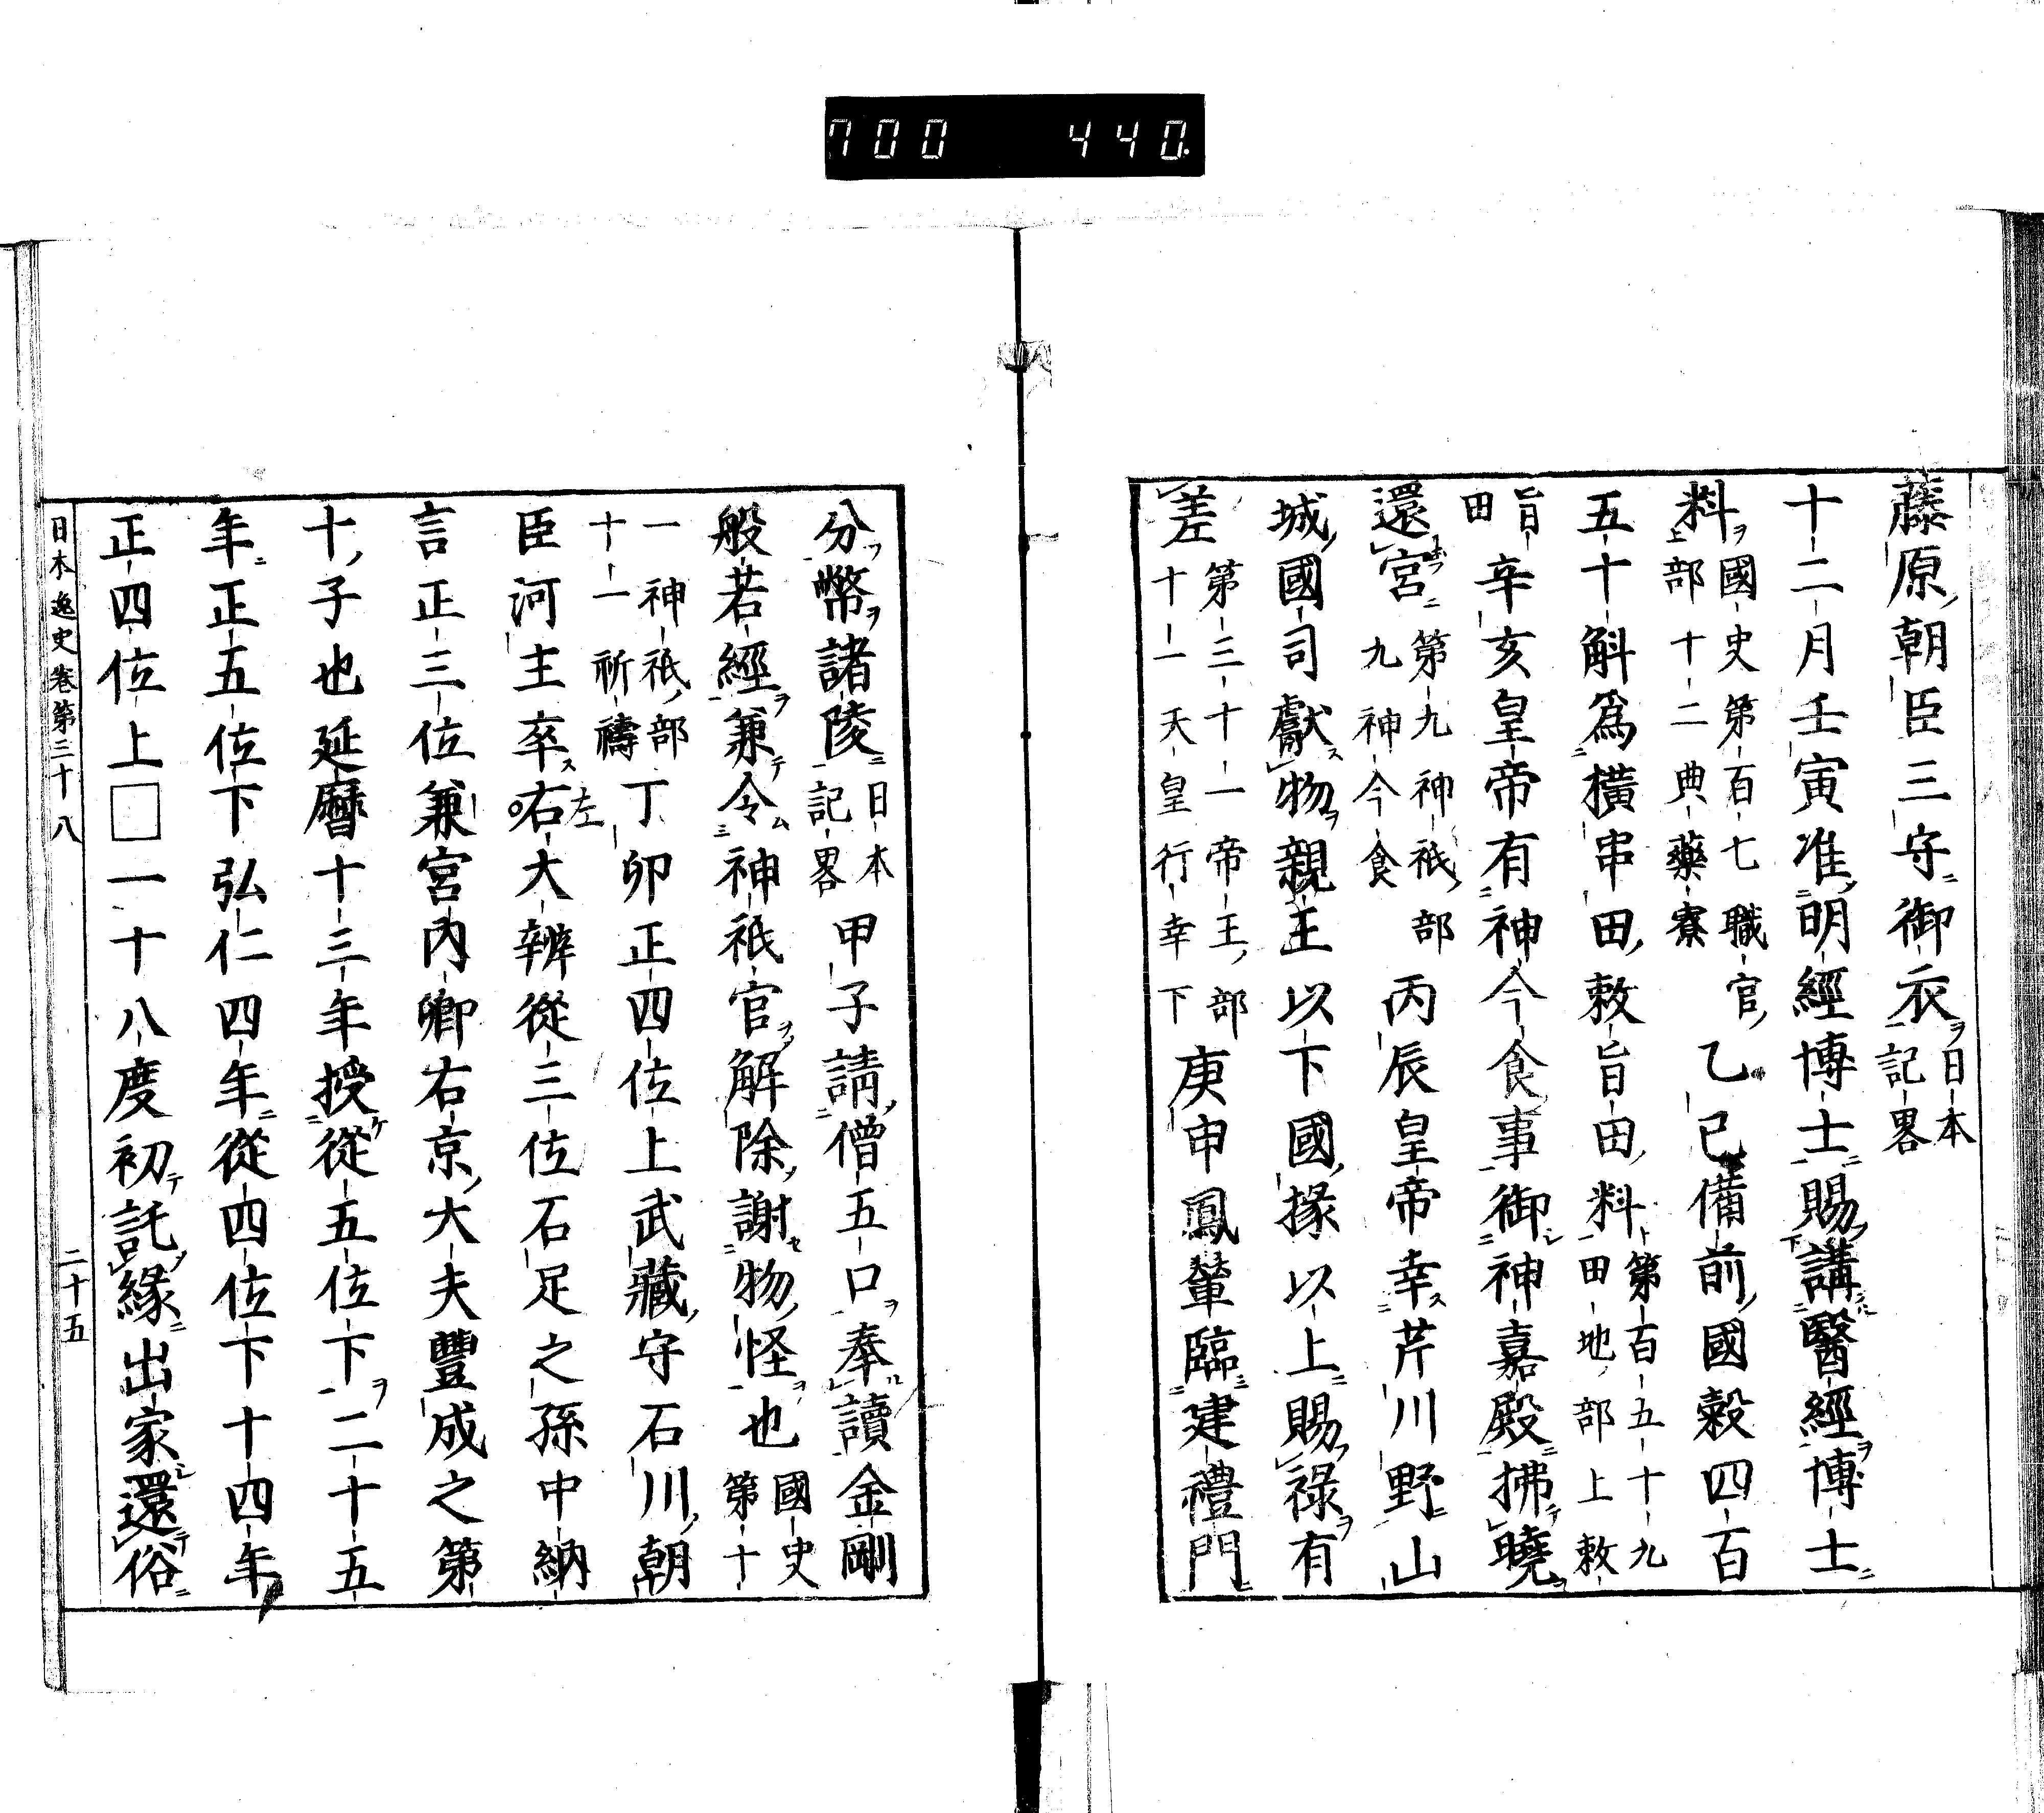 700 440.
藤原朝臣三守御衣日本記畧
十二月壬寅准明經博士賜講醫經博士
料國史第百七職官部十二典藥寮上乙巳備前國穀四百
五十斛爲橫串田敕旨田料第百五十九田地部上敕
旨田辛亥皇帝有神今食事御神嘉殿拂曉
還宮第九神祇部九神今食丙辰皇帝幸芹川野山
城國司獻物親王以下國掾以上賜祿有
差第三十一帝王部十一天皇行幸下庚申鳳輦臨建禮門
分幣諸陵日本記畧甲子請僧五口奉讀金剛
般若經兼令神祇官解除謝物怪也國史第十
一神祇部十一祈禱丁卯正四位上武藏守石川朝
臣河主卒右左大辨從三位石足之孫中納
言正三位兼宮內卿右京大夫豐成之第
十子也延曆十三年授從五位下二十五
年正五位下弘仁四年從四位下十四年
正四位上□一十八度初託緣出家還俗
日本逸史卷第三十八 二十五